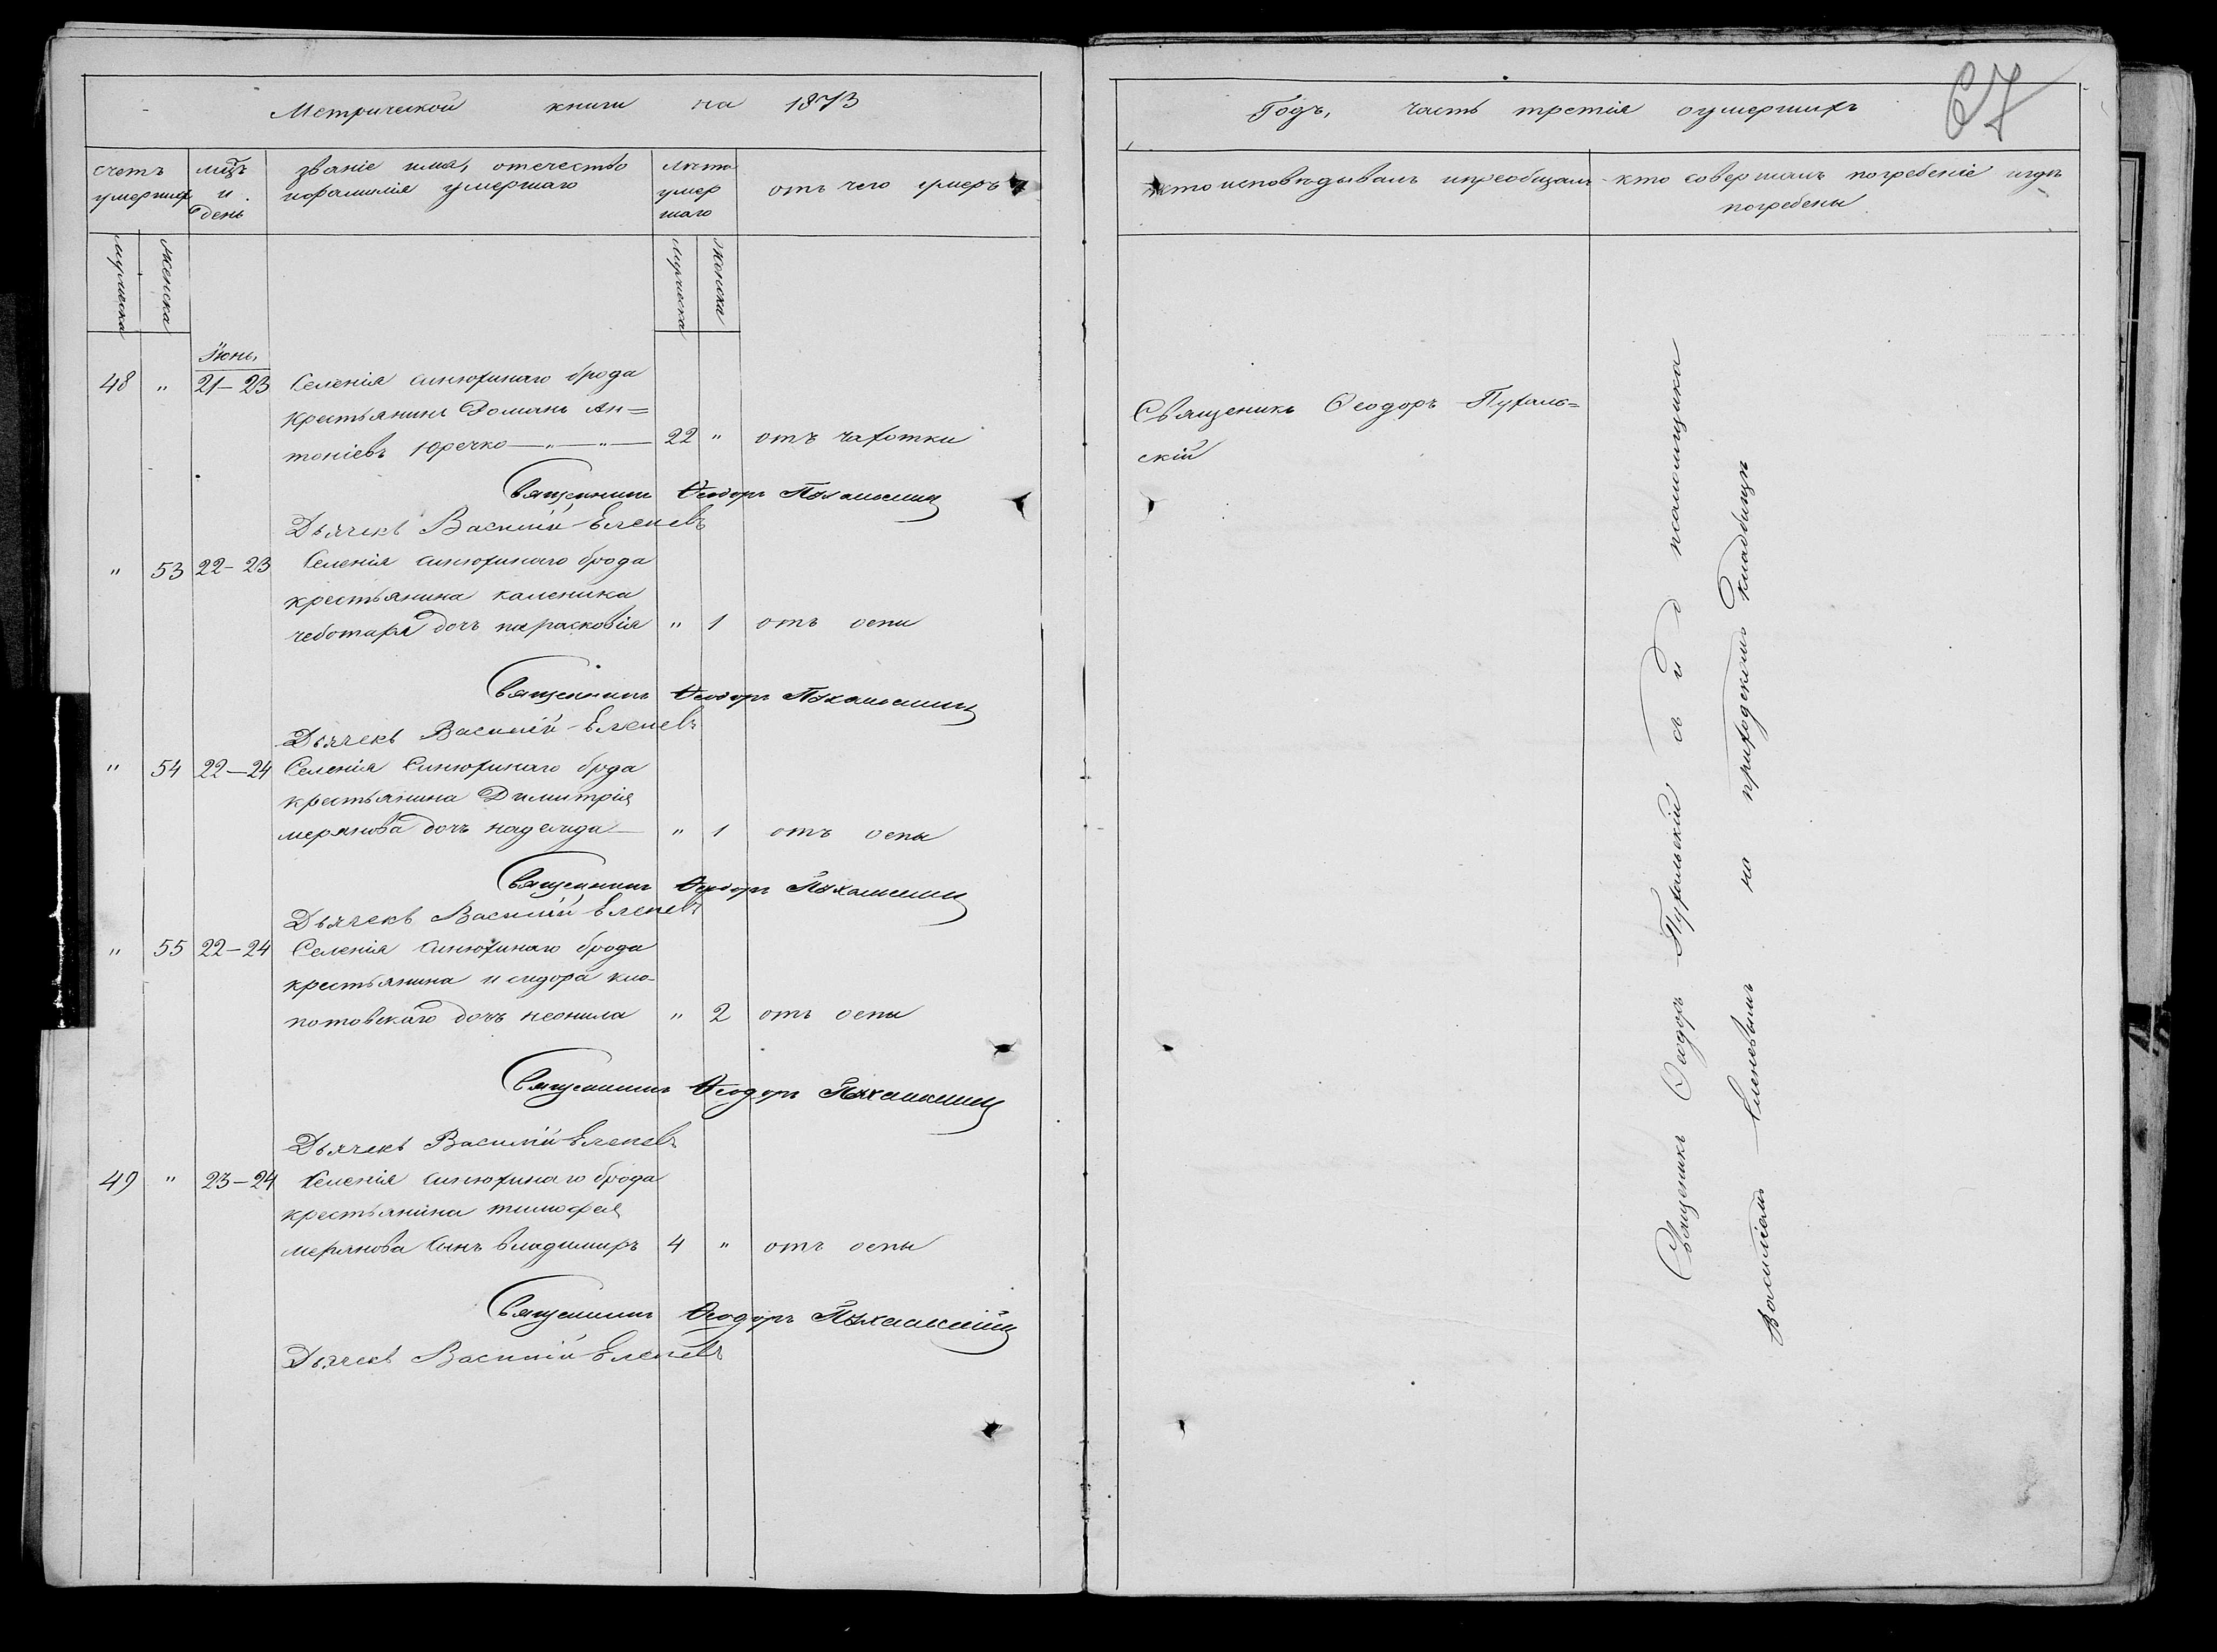 Метрической книги на 1873
счетъ умершихъ
мцъ и день
званіе имя, отечество
и фамилія умершаго
лета умер
шаго
отъ чего умеръ
мужеска
женска
мужеска
женска
Іюнь
48 " 21-23 Селенія Синюхинаго брода
крестьянинъ Романъ Ан=
тоніевъ Юречко — " — 22 " отъ чахотки
Священникъ Ѳеодоръ Пухальскій
Дьячекъ Василій Еленевъ
" 53 22-23 Селенія Синюхинаго брода
крестьянина каленика
чеботаря дочь парасковія " 1 отъ оспи
Священникъ Ѳеодоръ Пухальскій
Дьячекъ Василій Еленевъ
" 54 22-24 Селенія Синюхинаго брода
крестьянина Димитрія
мерянова дочь надежда " 1 отъ оспы
Священникъ Ѳеодоръ Пухальскій
Дьячекъ Василій Еленевъ
" 55 22-24 Селенія Синюхинаго брода
крестьянина исидора кло-
потовскаго дочь неонила " 2 отъ оспы
Священникъ Ѳеодоръ Пухальскій
Дьячекъ Василій Еленевъ
49 " 23-24 Селенія Синюхинаго брода
крестьянина тимофея
мерянова Сынъ владимиръ 4 " отъ оспы
Священникъ Ѳеодоръ Пухальскій
Дьячекъ Василій Еленевъ
Годъ, часть третія оумершихъ
67
кто исповѣдывалъ ипреобщалъ
кто совершалъ погребеніе игдѣ
погребены
Священикъ Ѳеодоръ Пухаль=
скій
Священикъ Ѳеодоръ Пухальскій съ и д псаломщика
Василіемъ Еленевымъ на приходскомъ кладбищѣ